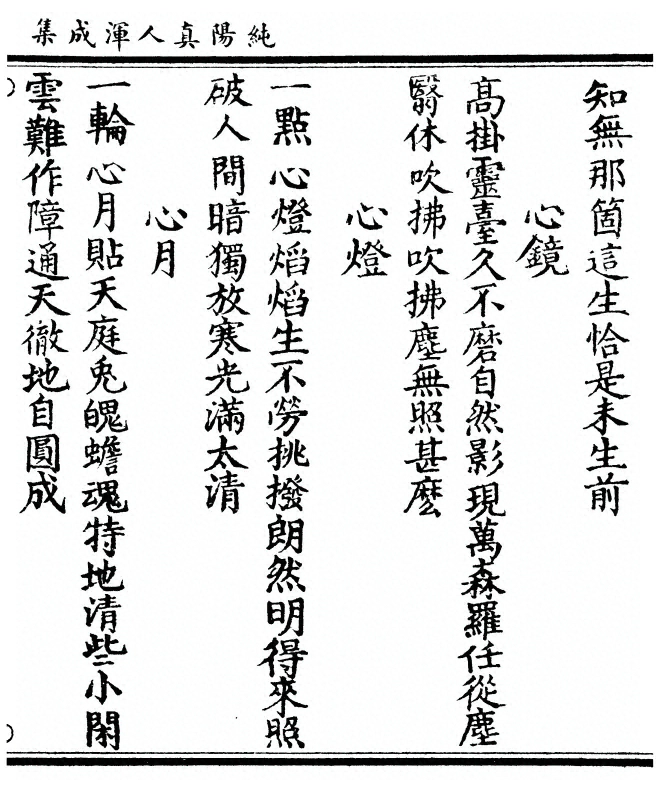 純陽真人渾成集
知無那箇這生恰是未生前
心鏡
高掛靈臺久不磨自然影現萬森羅任從塵
翳休吹拂吹拂塵無照甚麽
心燈
一點心燈熖熖生不勞挑撥朗然明得來照
破人間暗獨放寒光滿太清
心月
一輪心月貼天庭兎魄蟾魂特地清些小閑
雲難作障通天徹地自圓成